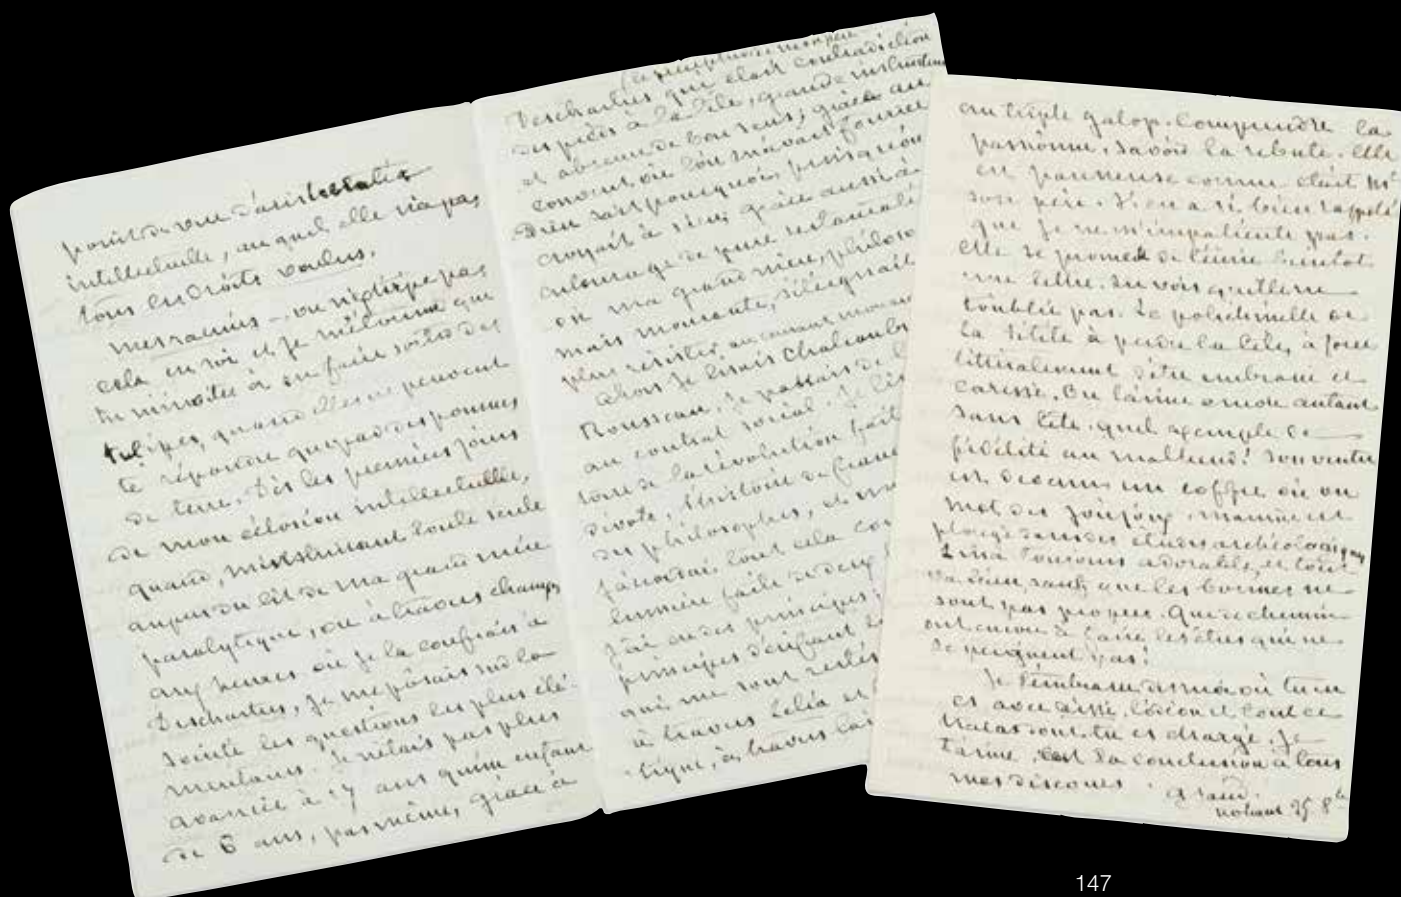 point de vue d'aristocratie
intellectuelle, auquel elle n'a pas
tous les droits voulus.
Mes racines – on n'extirpe pas
cela en soi et je m'étonne que
tu m'invites à en faire sortir des
tulipes, quand elles ne peuvent
te répondre que par des pommes
de terre. Dès les premiers jours
de mon éclosion intellectuelle,
quand, m'instruisant toute seule
auprès du lit de ma grand mère
paralytique, ou à travers champs
aux heures où je la confiais à
Deschartres, je me posais sur la
société les questions les plus élé-
mentaires. Je n'étais pas plus
avancée à 17 ans qu'un enfant
de 6 ans, pas même, grâce à
(le précepteur de mon père
Deschartres qui était contradiction
des pieds à la tête, grande instruction
et absence de bon sens; grâce au
couvent où l'on m'avait fourrée
Dieu sait pourquoi, puisqu'on
croyait à rien; grâce aussi à
entourage de pure restaurati
où ma grand mère, philoso
mais mourante, s'éteignait
plus résister au courant monar
Alors je lisais Chateaubr
Rousseau, je passais de l'
au contrat social. Je lis
toire de la révolution fait
dévots, l'histoire de France
des philosophes, et un
j'accordai tout cela co
lumière faite de deux
j'ai eu des principes;
principes d'enfant
qui me sont restés
à travers Lélia et
tique, à travers l'a
au triple galop. Comprendre la
passionne, savoir la rebute. Elle
est paresseuse comme était Mr
son père. Il en a si bien rappelé
que je ne m'impatiente pas.
Elle se promet de t'écrire bientôt
une lettre. Tu vois qu'elle ne
t'oublie pas. Le polichinelle de
la Titite à perdu la tête, à force
littéralement d'être embrassé et
caressé. On l'aime encore autant
sans tête. quel exemple de
fidélité au malheur! Son ventre
est devenu un coffre où on
met des joujoux. Maurice est
plongé dans des études archéologiques
Lina toujours adorable, et tout
va bien, sauf que les bonnes ne
sont pas propres. Que de chemin
ont encore à faire les êtres qui ne
se peignent pas!
Je t'embrasse. Dis moi où tu en
es avec Aïssé, l'Odéon et tout ce
tracas dont tu es chargé. Je
t'aime, c'est la conclusion à tous
mes discours. G Sand.
Nohant 25 8bre
147